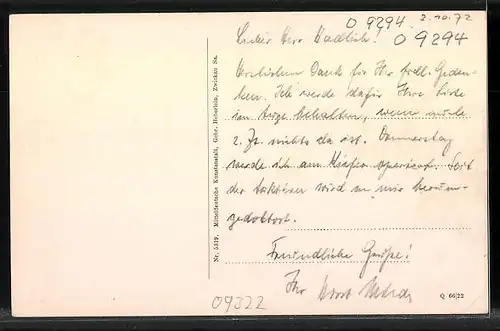 O 9294 2.10.72
Lieber Herr Hadlich! O 9294
Herzlichen Dank für Ihr frdl. Geden-
ken. Ich werde dafür Ihre Liste
im Auge behalten, wenn auch
z. Zt. nichts da ist. Donnerstag
werde ich am Kiefer operiert. Seit
der wird an mir herum-
gedoktort.
Freundliche Grüße!
Ihr Horst
Nr. 5319. Mitteldeutsche Kunstanstalt, Gebr. Heberlein, Zwickau Sa.
09322
Q 66/22